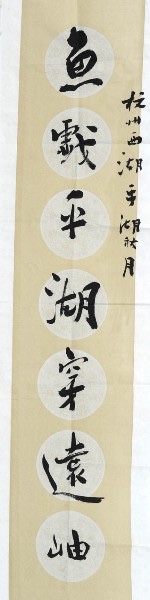 杭州西湖平湖秋月
魚戲平湖穿遠岫